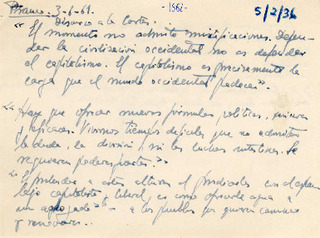 Franco. 3-6-61. -1862- 5/2/36
Discurso a las Cortes.
"El momento no admite mixtificaciones. Defen-
der la civilización occidental no es defender
el capitalismo. El capitalismo es precisamente la
carga que el mundo occidental padece".
"Hay que ofrecer nuevas fórmulas políticas,
y eficaces. Vivimos tiempos difíciles que no admiten
la duda, la división ni las luchas intestinas. Se
requieren poderes fuertes".
"El pretender a estas alturas el
capitalista liberal, es como ofrecerle agua a
un ahogado" a los pueblos que quieren caminar
y renovarse.